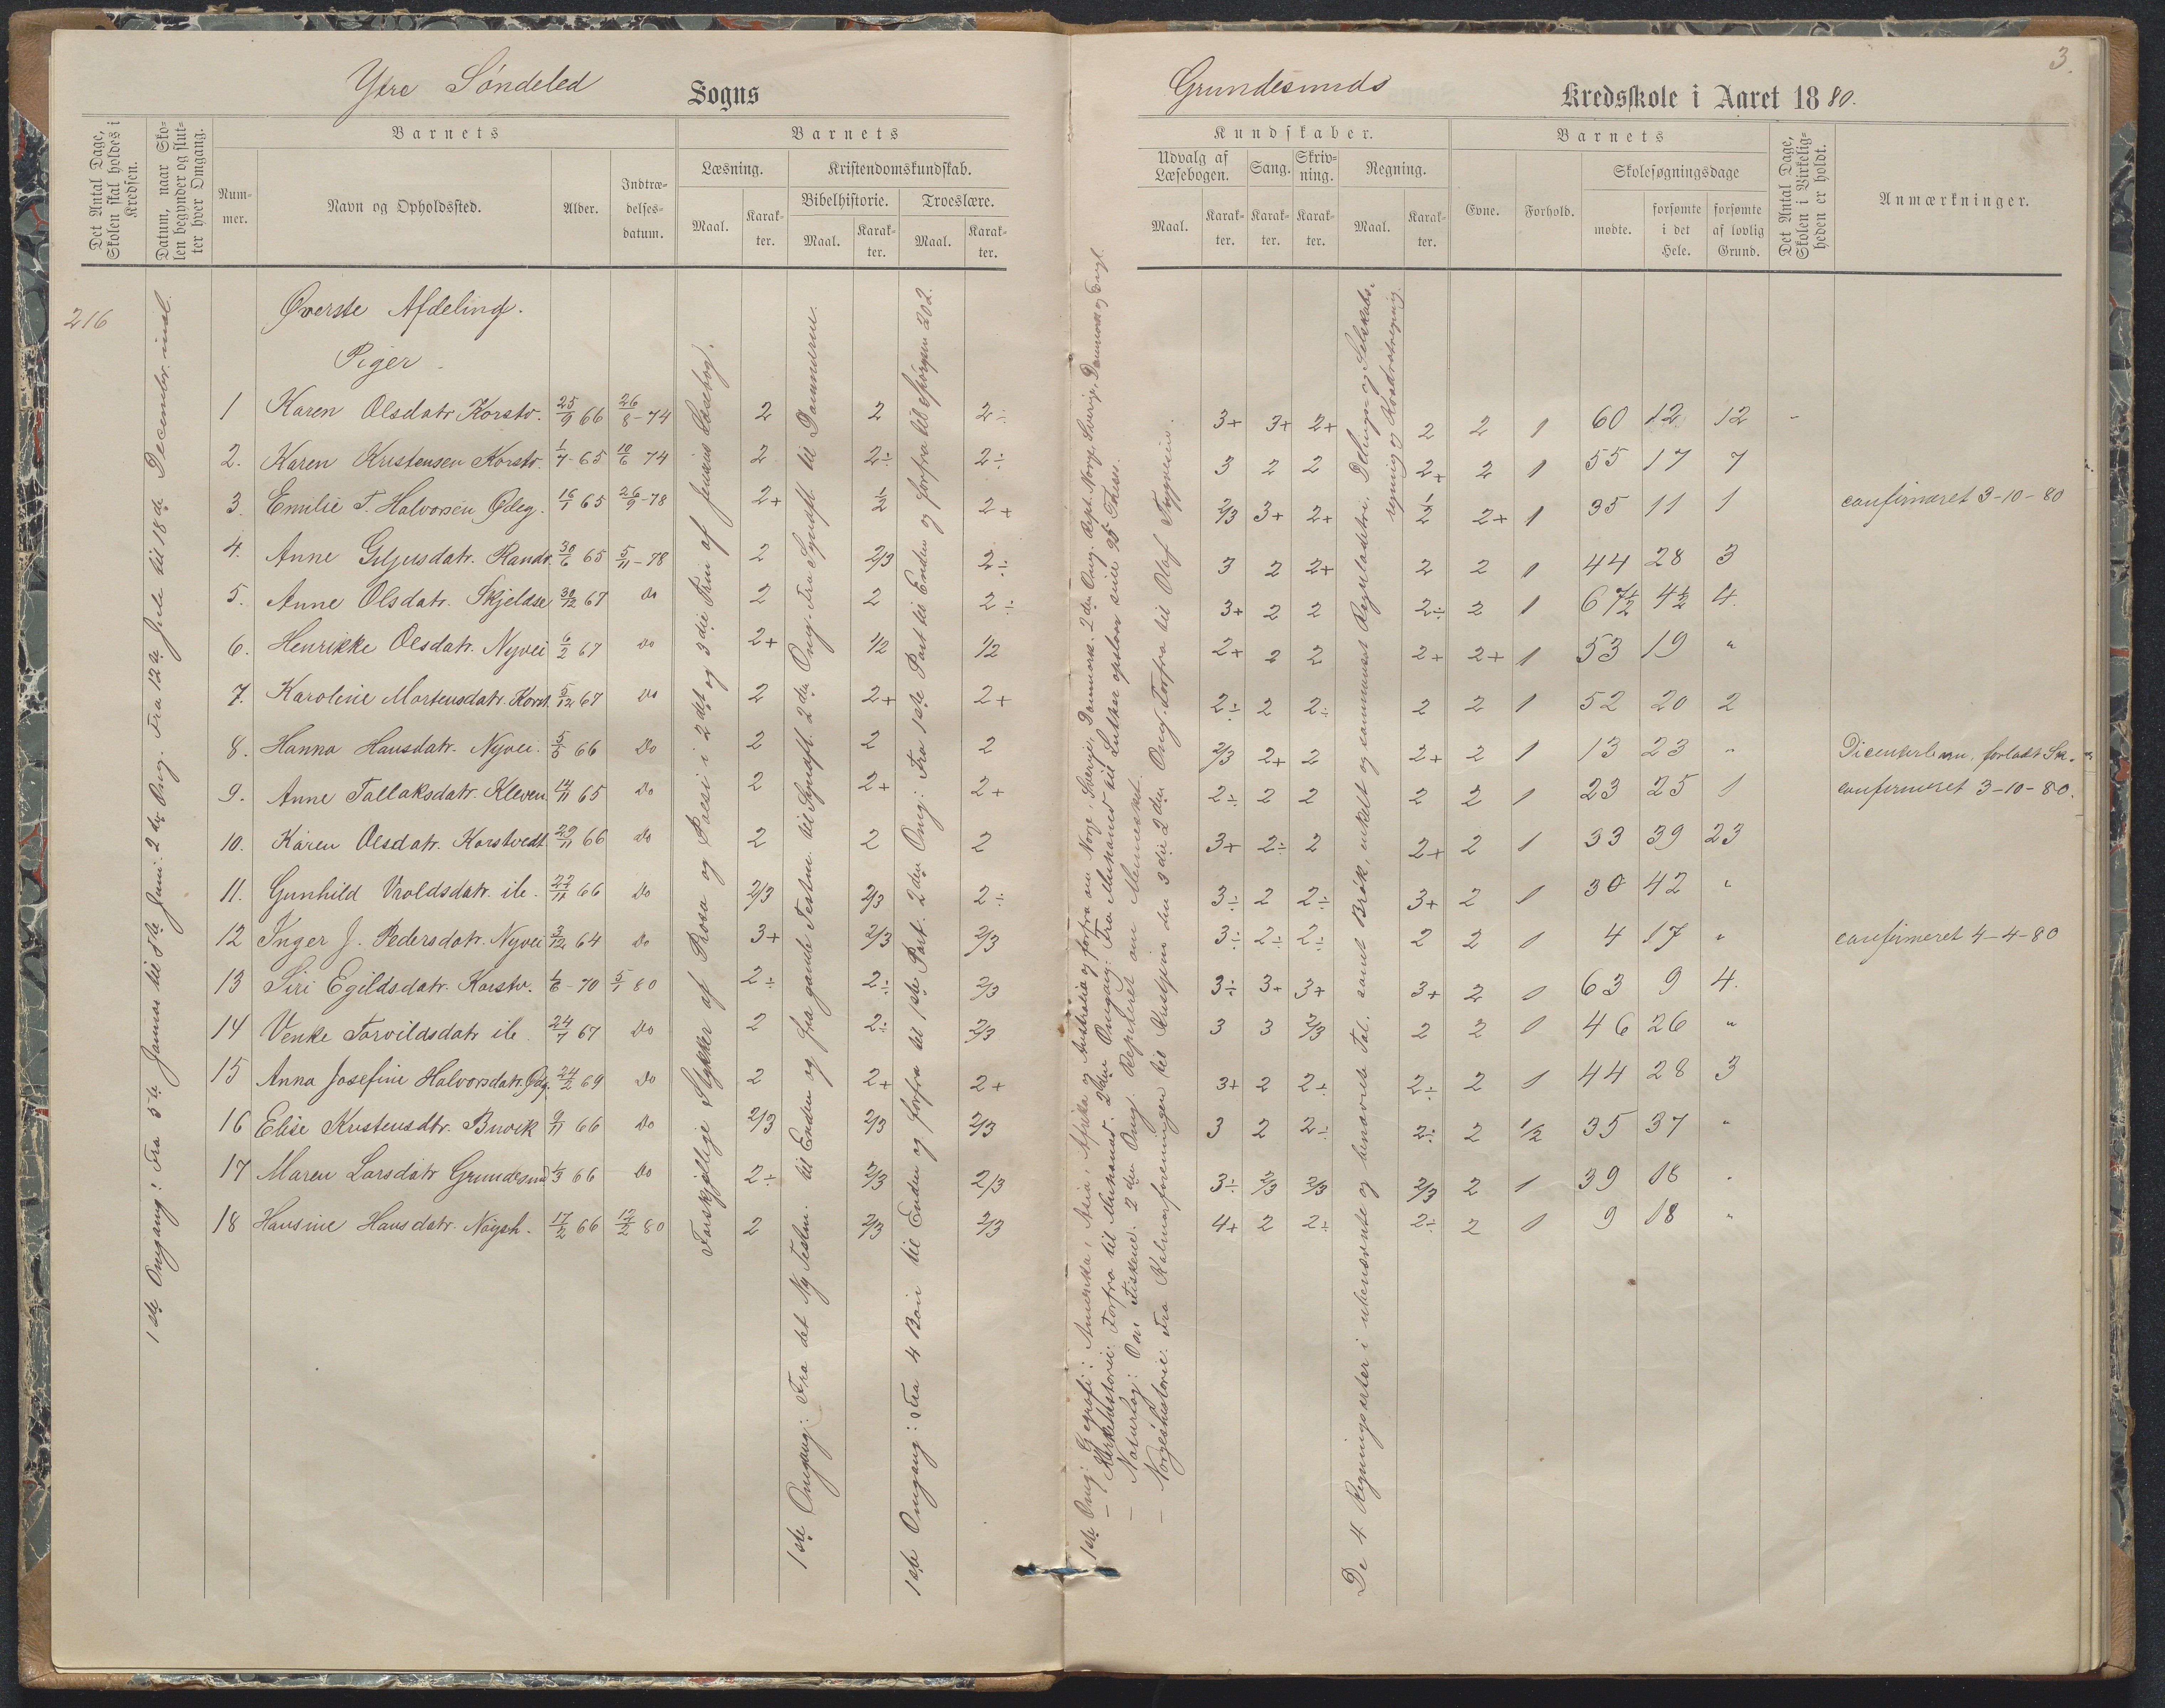 3.
Ytre Söndeled Sogns
Grundesunds Kredsskole i Aaret 1880.
Det Antal Dage, Skolen skal holdes i Kredsen.
Datum, naar Skolen begynder og slutter hver Omgang.
Barnets
Nummer.
Navn og Opholdssted.
Alder.
Indtrædelsesdatum.
Barnets
Læsning.
Maal.
Karakter.
Kristendomskundskab.
Bibelhistorie.
Maal.
Karakter.
Troeslære.
Maal.
Karakter.
Kundskaber.
Udvalg af Læsebogen.
Maal.
Karakter.
Sang.
Karakter.
Skrivning.
Karakter.
Regning.
Maal.
Karakter.
Barnets
Evne.
Forhold.
Skolesøgningsdage
mødte.
forsømte i det Hele.
forsømte af lovlig Grund.
Det Antal Dage, Skolen i Virkeligheden er holdt.
Anmærkninger.
216
Øverste Afdeling.
Piger.
1 Karen Olsdatr Korstv. 25/9 66 26/8-74 2 2 2÷ 3+ 3+ 2+ 2 2 1 60 12 12
2. Karen Kristensen Korstv. 1/7-65 10/6 74 2 2÷ 2÷ 3 2 2 2+ 2 1 55 17 7
3. Emilie T. Halvorsen Ødeg. 16/1 65 26/9-78 2+ 1/2 2+ 2/3 3+ 2+ 1/2 2+ 1 35 11 1 confirmeret 3-10-80
4. Anne Guljusdatr. Randv. 30/6 65 5/11-78 2 2/3 2÷ 3 2 2+ 2 2 1 44 28 3
5. Anne Olsdatr. Skjeldsø 30/12 67 Do 2 2 2÷ 3+ 2 2 2÷ 2 1 67 1/2 4 1/2 4.
6. Henrikke Olsdatr. Nyvei 6/2 67 Do 2+ 1/2 1/2 2+ 2 2 2+ 2+ 1 53 19 "
7. Karoline Mortensdatr. Korst. 5/12 67 Do 2 2+ 2+ 2÷ 2 2÷ 2 2 1 52 20 2
8. Hanna Hansdatr. Nyvei. 5/5 66 Do 2 2 2 2/3 2+ 2 2+ 2 1 13 23 " forladt Sk.
9. Anne Tallaksdatr. Kleven 14/11 65 Do 2 2+ 2+ 2÷ 2 2 2 2 1 23 25 1 confirmeret 3-10-80.
10. Karen Olsdatr. Korstvedt 29/11 66 Do 2 2 2 3+ 2÷ 2 2+ 2 1 33 39 23
11. Gunhild Vroldsdatr. ib. 27/11 66 Do 2/3 2/3 2÷ 3÷ 2 2÷ 3+ 2 1 30 42 "
12 Inger J. Pedersdatr. Nyvei 3/12 64 Do 3+ 2/3 2/3 3÷ 2÷ 2÷ 2 2 1 4 17 " confirmeret 4-4-80
13 Siri Egildsdatr. Korstv. 4/6-70 5/1 80 2÷ 2÷ 2/3 3÷ 3+ 3+ 3+ 2 1 63 9 4.
14 Venke Torvildsdatr ib 24/7 67 Do 2 2÷ 2/3 3 3 2/3 2 2 1 46 26 "
15 Anna Josefine Halvorsdatr. Ødg. 24/2 69 Do 2 2+ 2+ 3+ 2 2÷ 2÷ 2 1 44 28 3
16 Elise Kristensdtr. Buvik 9/11 66 Do 2/3 2/3 2/3 3 2 2÷ 2÷ 2 1/2 35 37 "
17 Maren Larsdatr Grundesund 4/3 66 Do 2÷ 2/3 2/3 3÷ 2/3 2/3 2/3 2 1 39 18 "
18 Hansine Hansdatr. 17/2 66 12/2 80 2 2/3 2/3 4+ 2 2÷ 2÷ 2 1 9 18 "
1ste Omgang: Fra 5te Januar til 8de Juni. 2den Omg. Fra 12te Jule til 18de December incl.
Forskjellige Stykker af Prosa og Poesi i 2det og 3die Trin af Jensens Læsebog.
1ste Omgang: Fra det Ny Testm. til Enden og fra gamle Testm. til Synafl. 2den Omg. Fra Synafl. til Dommerne.
1ste Omgang: Fra 4 Bøn til Enden og forfra til 1ste Part. 2den Omg: Fra 1ste Part til Enden og forfra til Spørgsm 202.
1ste Omg: Geografi: Amerika, Asia, Afrika og Australia og forfra om Norge, Sverige, Danmark. 2den Omg. Rept. Norge Sverige, Danmark og Engl.
— Kirkehistorie: Forfra til Muhamed. 2den Omgang: Fra Muhamed til Luther opslaar sine 95 Theser.
— Naturhist: Om Fiskene. 2den Omg. Repteret om Mennesket.
— Norgeshistorie. Fra Kalmarforeningen til Kristjan den 3die 2den Omg. Forfra til Olaf Trygvesøn.
De 4 Regningsarter i ubenævnte og benævnte Tal. samt Brøk, enkelt og sammensat Reguladetri. Delings og Selskabsregning og Kvadratregning.